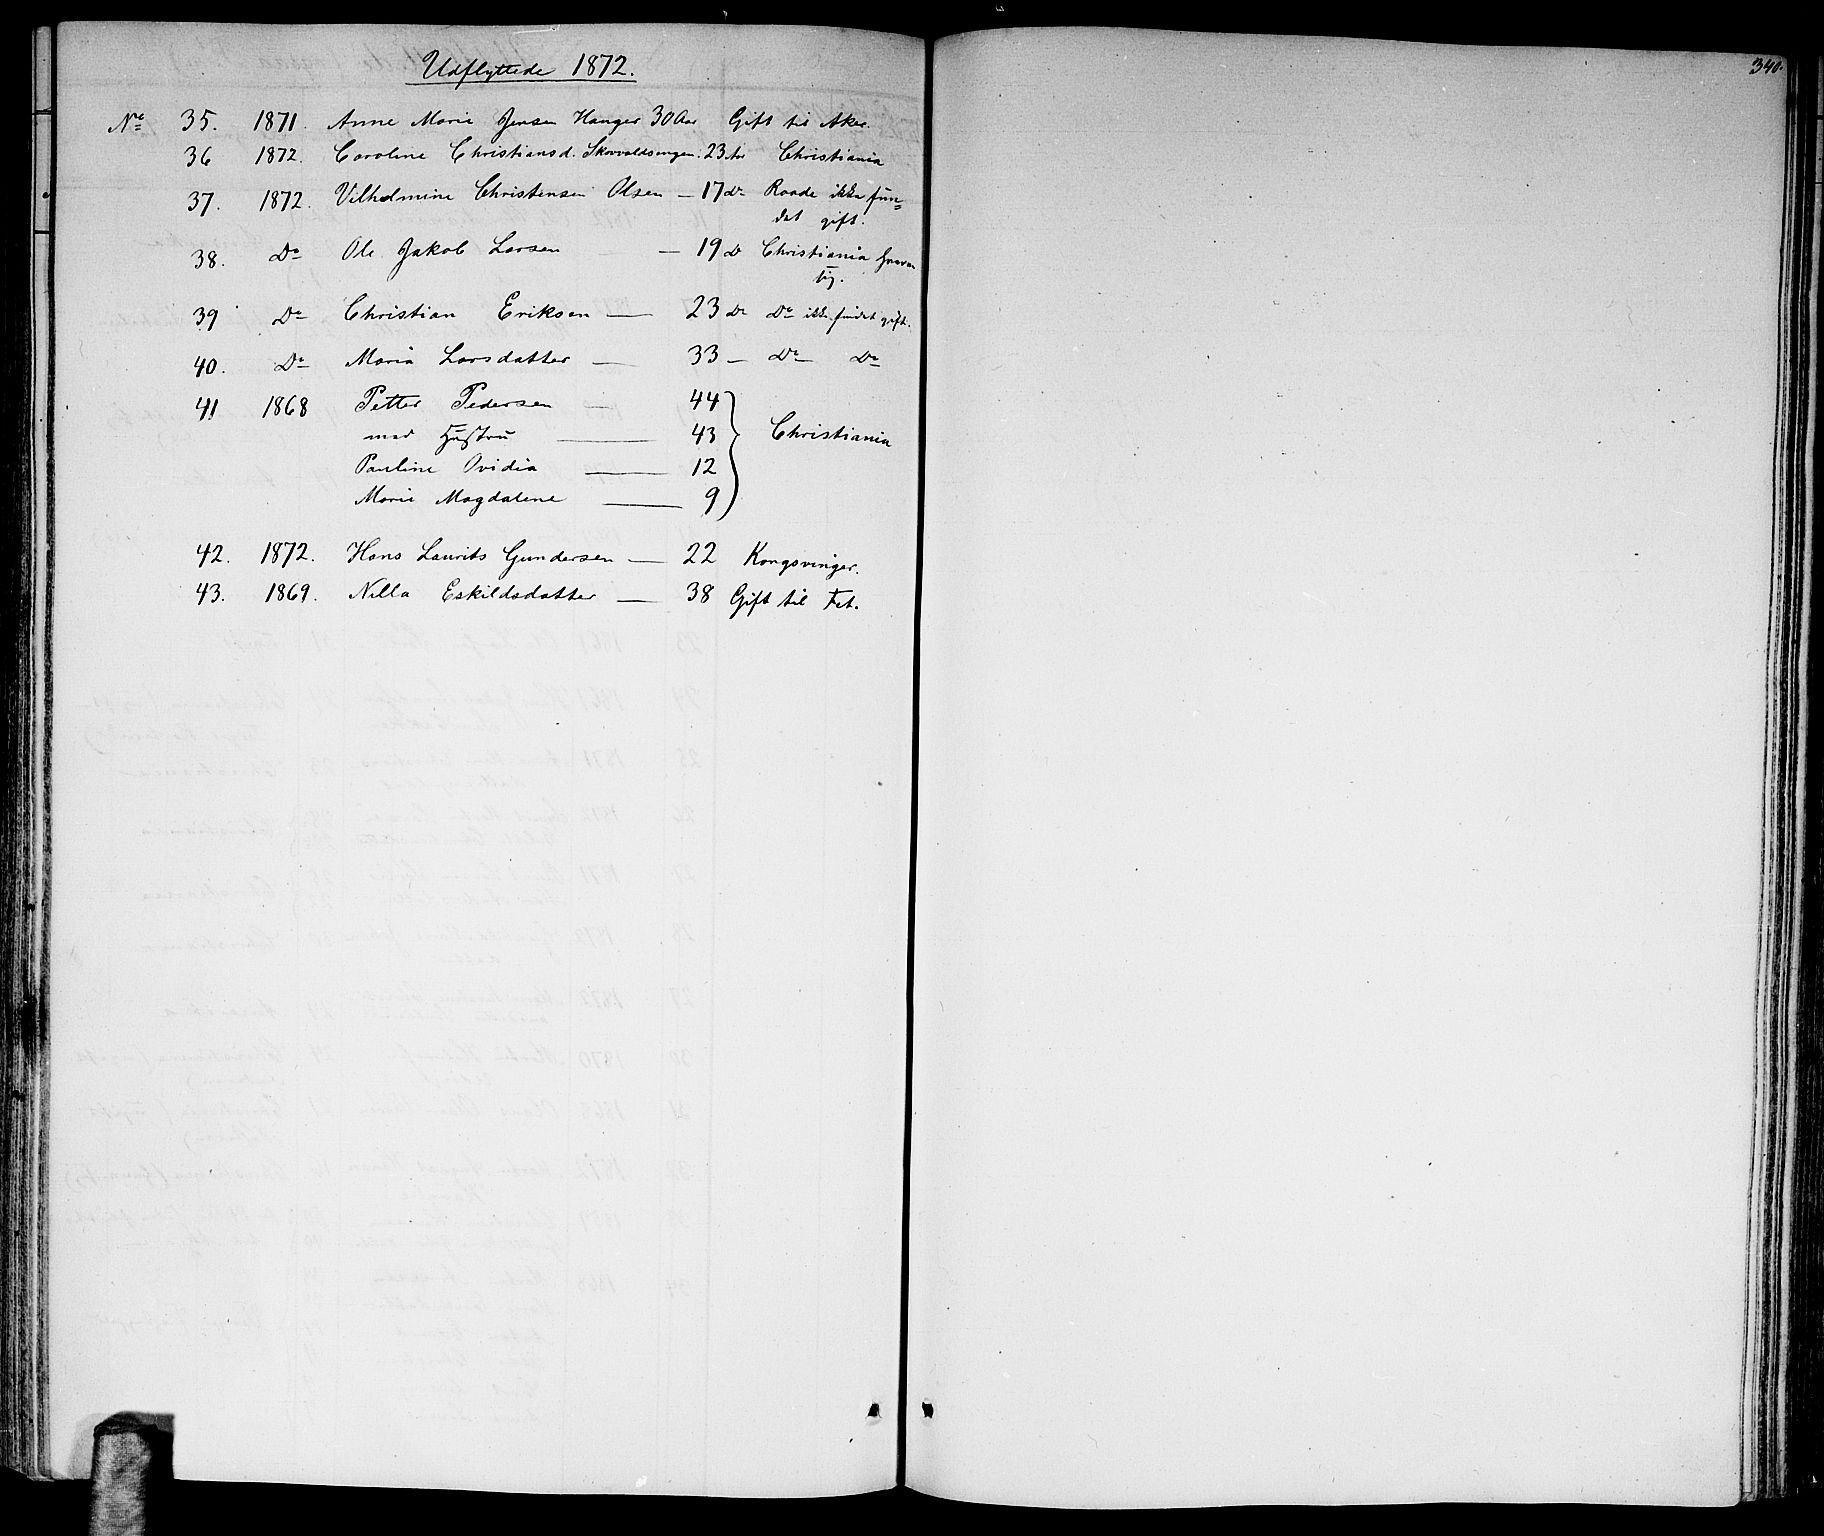 340.
Udflyttede 1872.
No 35. 1871. Anne Marie Jensen Hanger 30 Aar Gift til Aker.
36 1872. Caroline Christiansd. Skovvoldsengen. 23 Aar Christiania
37. 1872. Vilhelmine Christensen Olsen — 17 Do Raade ikke fun=
det gift.
38. Do Ole Jakob Larsen — 19 Do Christiania
39 Do Christian Eriksen — 23 Do Do ikke fundet gift.
40. Do Maria Larsdatter — 33 — Do Do
41 1868 Petter Pedersen — 44
med Hustru — 43 Christiania
Pauline Ovidia — 12
Marie Magdalene — 9
42. 1872. Hans Laurits Gundersen — 22 Kongsvinger.
43. 1869. Nilla Eskildsdatter — 38 Gift til Fet.